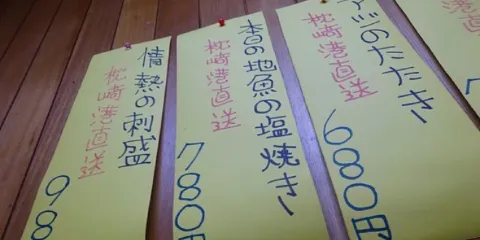 アジのたたき
枕崎港直送
680円
本日の地魚の塩焼き
枕崎港直送
780円
情熱の刺盛
枕崎港直送
98